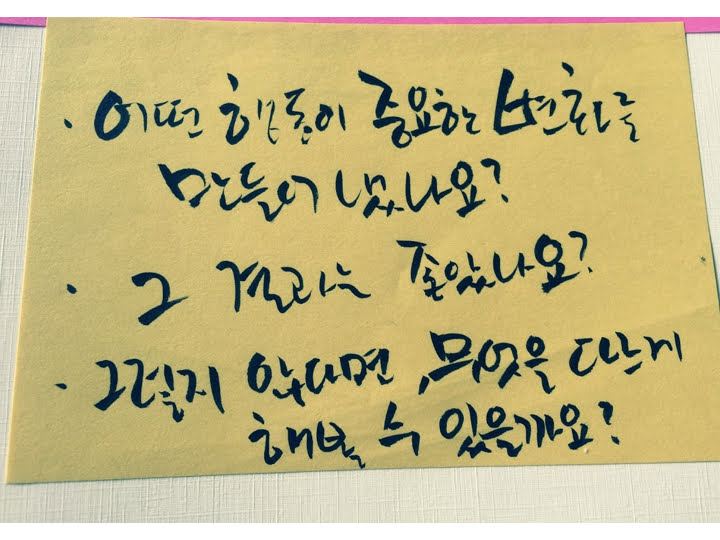 · 어떤 행동이 중요한 변화를
만들어 냈나요?
· 그 결과는 좋았나요?
· 그렇지 않다면, 무엇을 다르게
해볼 수 있을까요?